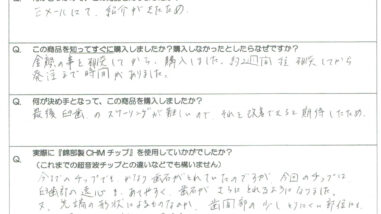 Eメールにて、紹介がきたため
Q. この商品を知ってすぐに購入しましたか？購入しなかったとしたらなぜですか？
金額の事を相談してから、購入しました。約2週間程 相談してから
発注まで時間がありました。
Q. 何が決め手となって、この商品を購入しましたか？
最後臼歯のスケーリングが難しいので それを改善できると期待したため。
Q. 実際に『錦部製CHMチップ』を使用していかがでしたか？
（これまでの超音波チップとの違いなどでも構いません）
今までのチップでも かなり歯石がとれていたのですが 今回のチップは
臼歯部の遠心も、あてやすく、歯石が さらにとれるようになりました。
又、先端の形状によるものなのか、歯間部の少しとりにくい部位にも